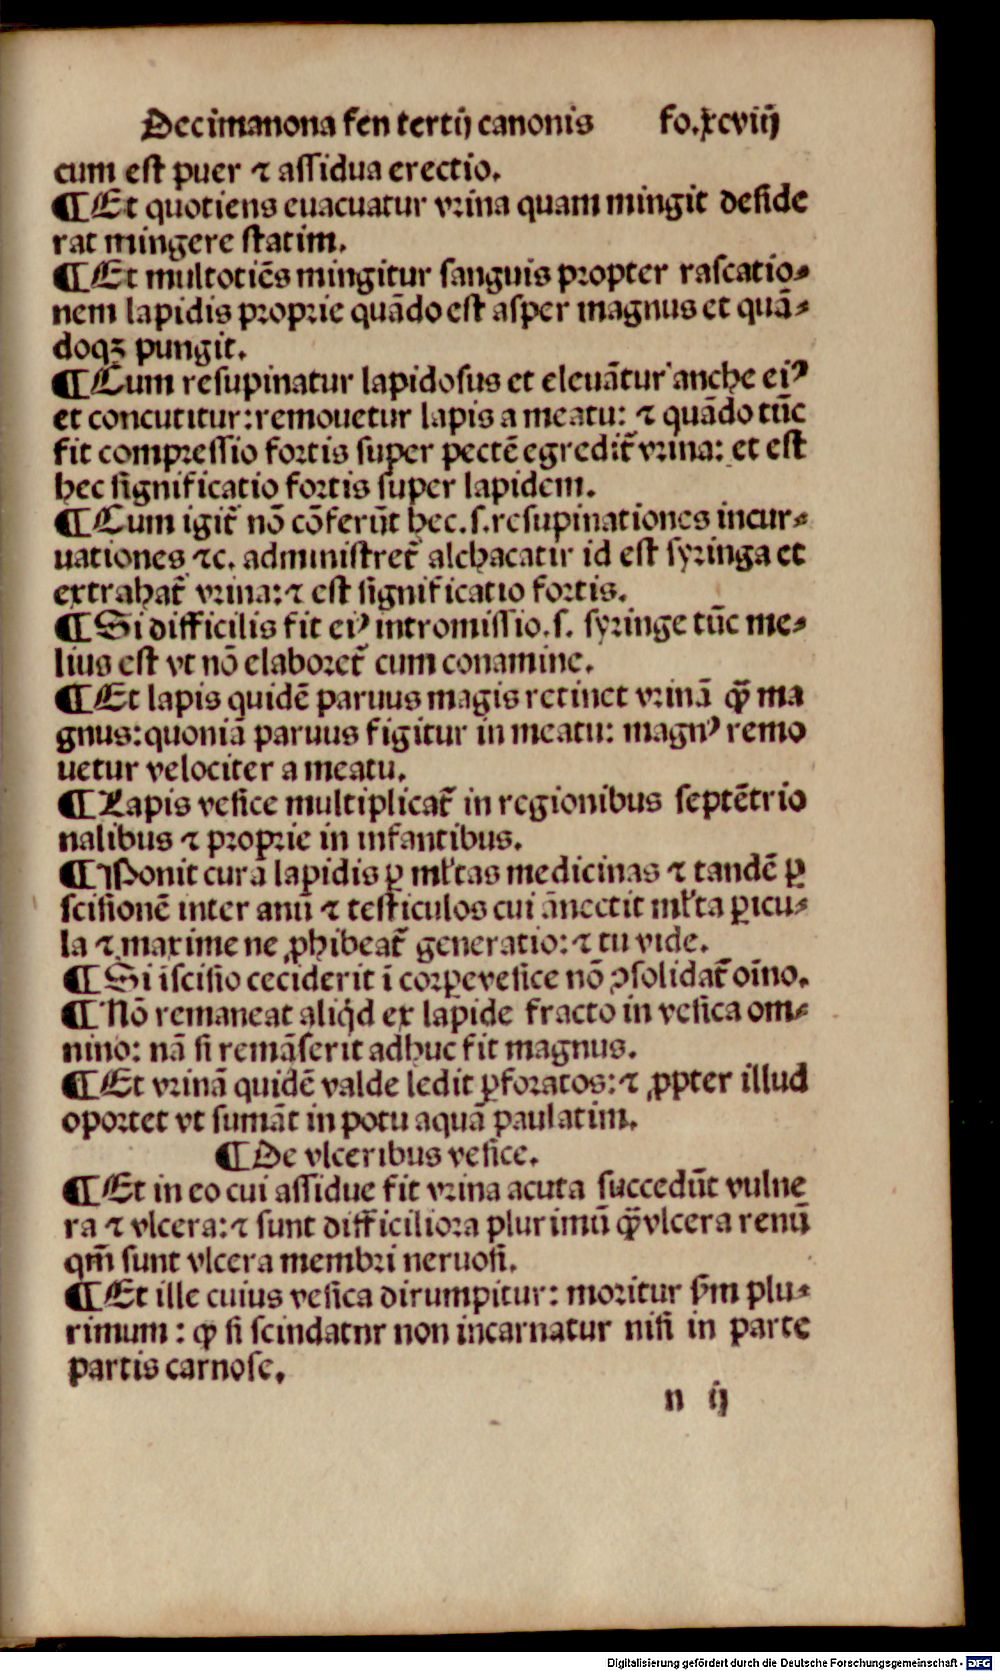 Decimanona fen tertij canonis fo.xcviij
cum est puer ⁊ assidua erectio.
¶Et quotiens euacuatur vrina quam mingit deside
rat mingere statim.
¶Et multotiẽs mingitur sanguis propter rascatio⸗
nem lapidis proprie quãdo est asper magnus et quã⸗
doqꝫ pungit.
¶Cum resupinatur lapidosus et eleuãtur anche eiꝰ
et concutitur:remouetur lapis a meatu: ⁊ quãdo tũc
fit compressio fortis super pectẽ egredit̃ vrina: et est
hec significatio fortis super lapidem.
¶Cum igit̃ nõ cõferũt hec.s.resupinationes incur⸗
uationes ⁊c. administret̃ alchacatir id est syringa et
extrahat̃ vrina:⁊ est significatio fortis.
¶Si difficilis fit eiꝰ intromissio.s. syringe tũc me⸗
lius est vt nõ elaboret̃ cum conamine.
¶Et lapis quidẽ paruus magis retinet vrinã ꝙ̃ ma
gnus:quoniã paruus figitur in meatu: magnꝰ remo
uetur velociter a meatu.
¶Lapis vesice multiplicat̃ in regionibus septẽtrio
nalibus ⁊ proprie in infantibus.
¶Ponit cura lapidis ꝑ ml̃tas medicinas ⁊ tandẽ ꝑ
scisionẽ inter anũ ⁊ testiculos cui ãnectit ml̃ta ꝑicu⸗
la ⁊ maxime ne ꝓhibeat̃ generatio:⁊ tu vide.
¶Si ĩscisio ceciderit ĩ corꝑe vesice nõ ꝯsolidat̃ oĩno.
¶Nõ remaneat aliq̇d ex lapide fracto in vesica om⸗
nino: nã si remãserit adhuc fit magnus.
¶Et vrinã quidẽ valde ledit ꝑforatos:⁊ ꝓpter illud
oportet vt sumãt in potu aquã paulatim.
¶De vlceribus vesice.
¶Et in eo cui assidue fit vrina acuta succedũt vulne
ra ⁊ vlcera:⁊ sunt difficiliora plurimũ ꝙ̃ vlcera renũ
qm̃ sunt vlcera membri neruosi.
¶Et ille cuius vesica dirumpitur: moritur ẜm plu⸗
rimum : ꝙ si scindatnr non incarnatur nisi in parte
partis carnose.
n ij
Digitalisierung gefördert durch die Deutsche Forschungsgemeinschaft - DFG